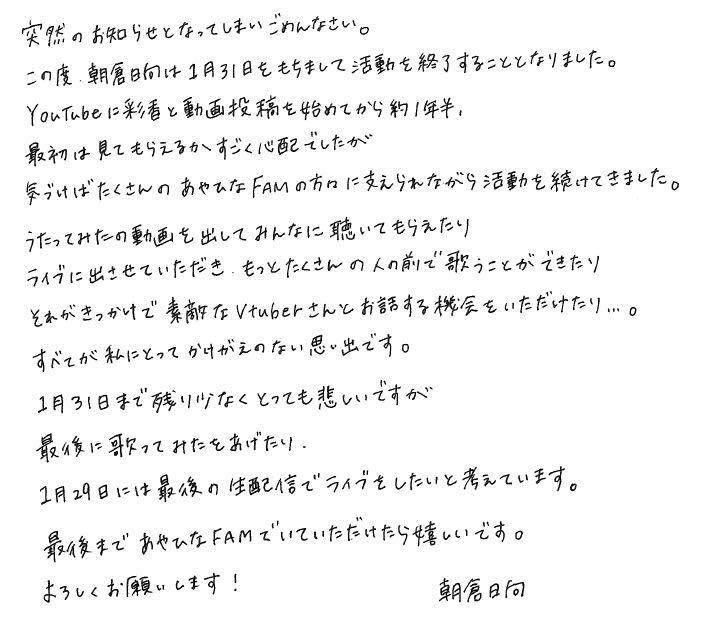 突然のお知らせとなってしまいごめんなさい。
この度、朝倉日向は1月31日をもちまして活動を終了することとなりました。
YouTubeに彩香と動画投稿を始めてから約1年半、
最初は見てもらえるかすごく心配でしたが
気づけばたくさんのあやひなFAMの方々に支えられながら活動を続けてきました。
うたってみたの動画を出してみんなに聴いてもらえたり
ライブに出させていただき、もっとたくさんの人の前で歌うことができたり
それがきっかけで素敵なVtuberさんとお話する機会をいただけたり...。
すべてが私にとってかけがえのない思い出です。
1月31日まで残り少なくとっても悲しいですが
最後に歌ってみたをあげたり、
1月29日には最後の生配信でライブをしたいと考えています。
最後まであやひなFAMでいていただけたら嬉しいです。
よろしくお願いします！
朝倉日向